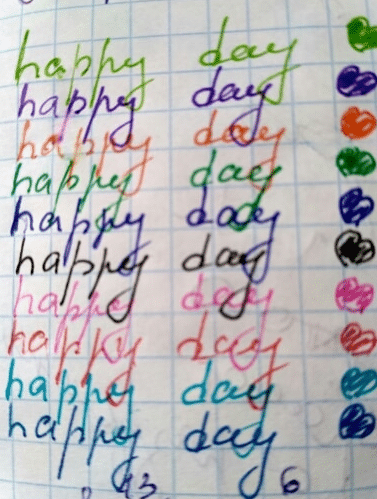 happy day
happy day
happy day
happy day
happy day
happy day
happy day
happy day
happy day
happy day
43 6